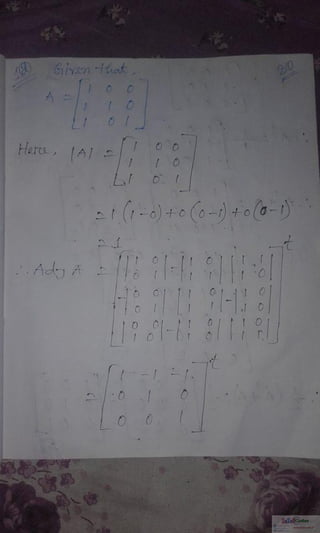 Given that,
A = [1 0 0
1 1 0
1 0 1]
Here, |A| = [1 0 0
1 1 0
1 0 1]
= 1 (1-0) + 0 (0-1) + 0 (0-1)
= 1
∴ Adj A = [|1 0 0 1| - |1 0 1 1| |1 1 1 0|
-|0 0 0 1| |1 0 1 1| -|1 0 1 0|
|0 0 1 0| -|1 0 1 0| |1 0 1 1|]t
= [1 -1 -1
0 1 0
0 0 1]t